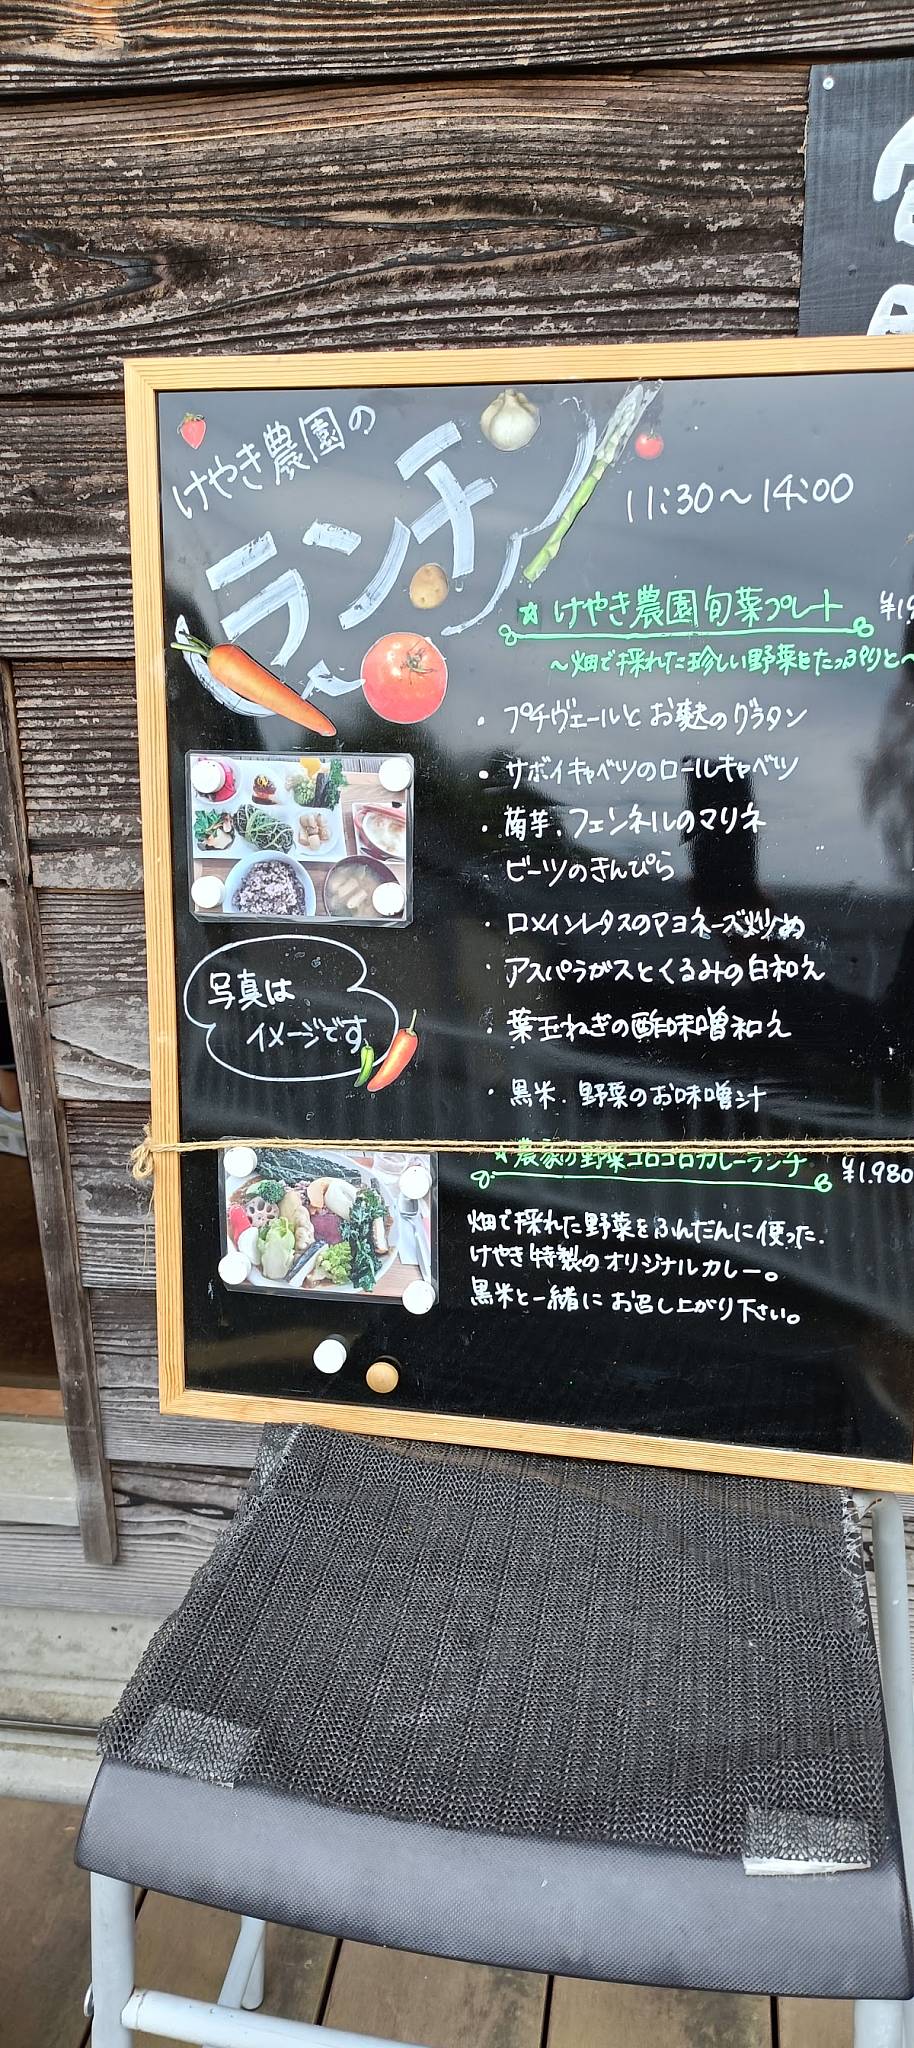 けやき農園の
ランチ
11:30〜14:00
☆ けやき農園旬菜プレート ¥19
〜畑で採れた珍しい野菜をたっぷりと〜
・プチヴェールとお麩のグラタン
・サボイキャベツのロールキャベツ
・菊芋、フェンネルのマリネ
ビーツのきんぴら
・ロメインレタスのマヨネーズ炒め
・アスパラガスとくるみの白和え
・葉玉ねぎの酢味噌和え
・黒米、野菜のお味噌汁
写真は
イメージです
☆農家の野菜ゴロゴロカレーランチ ¥1.980
畑で採れた野菜をふんだんに使った、
けやき特製のオリジナルカレー。
黒米と一緒にお召し上がり下さい。